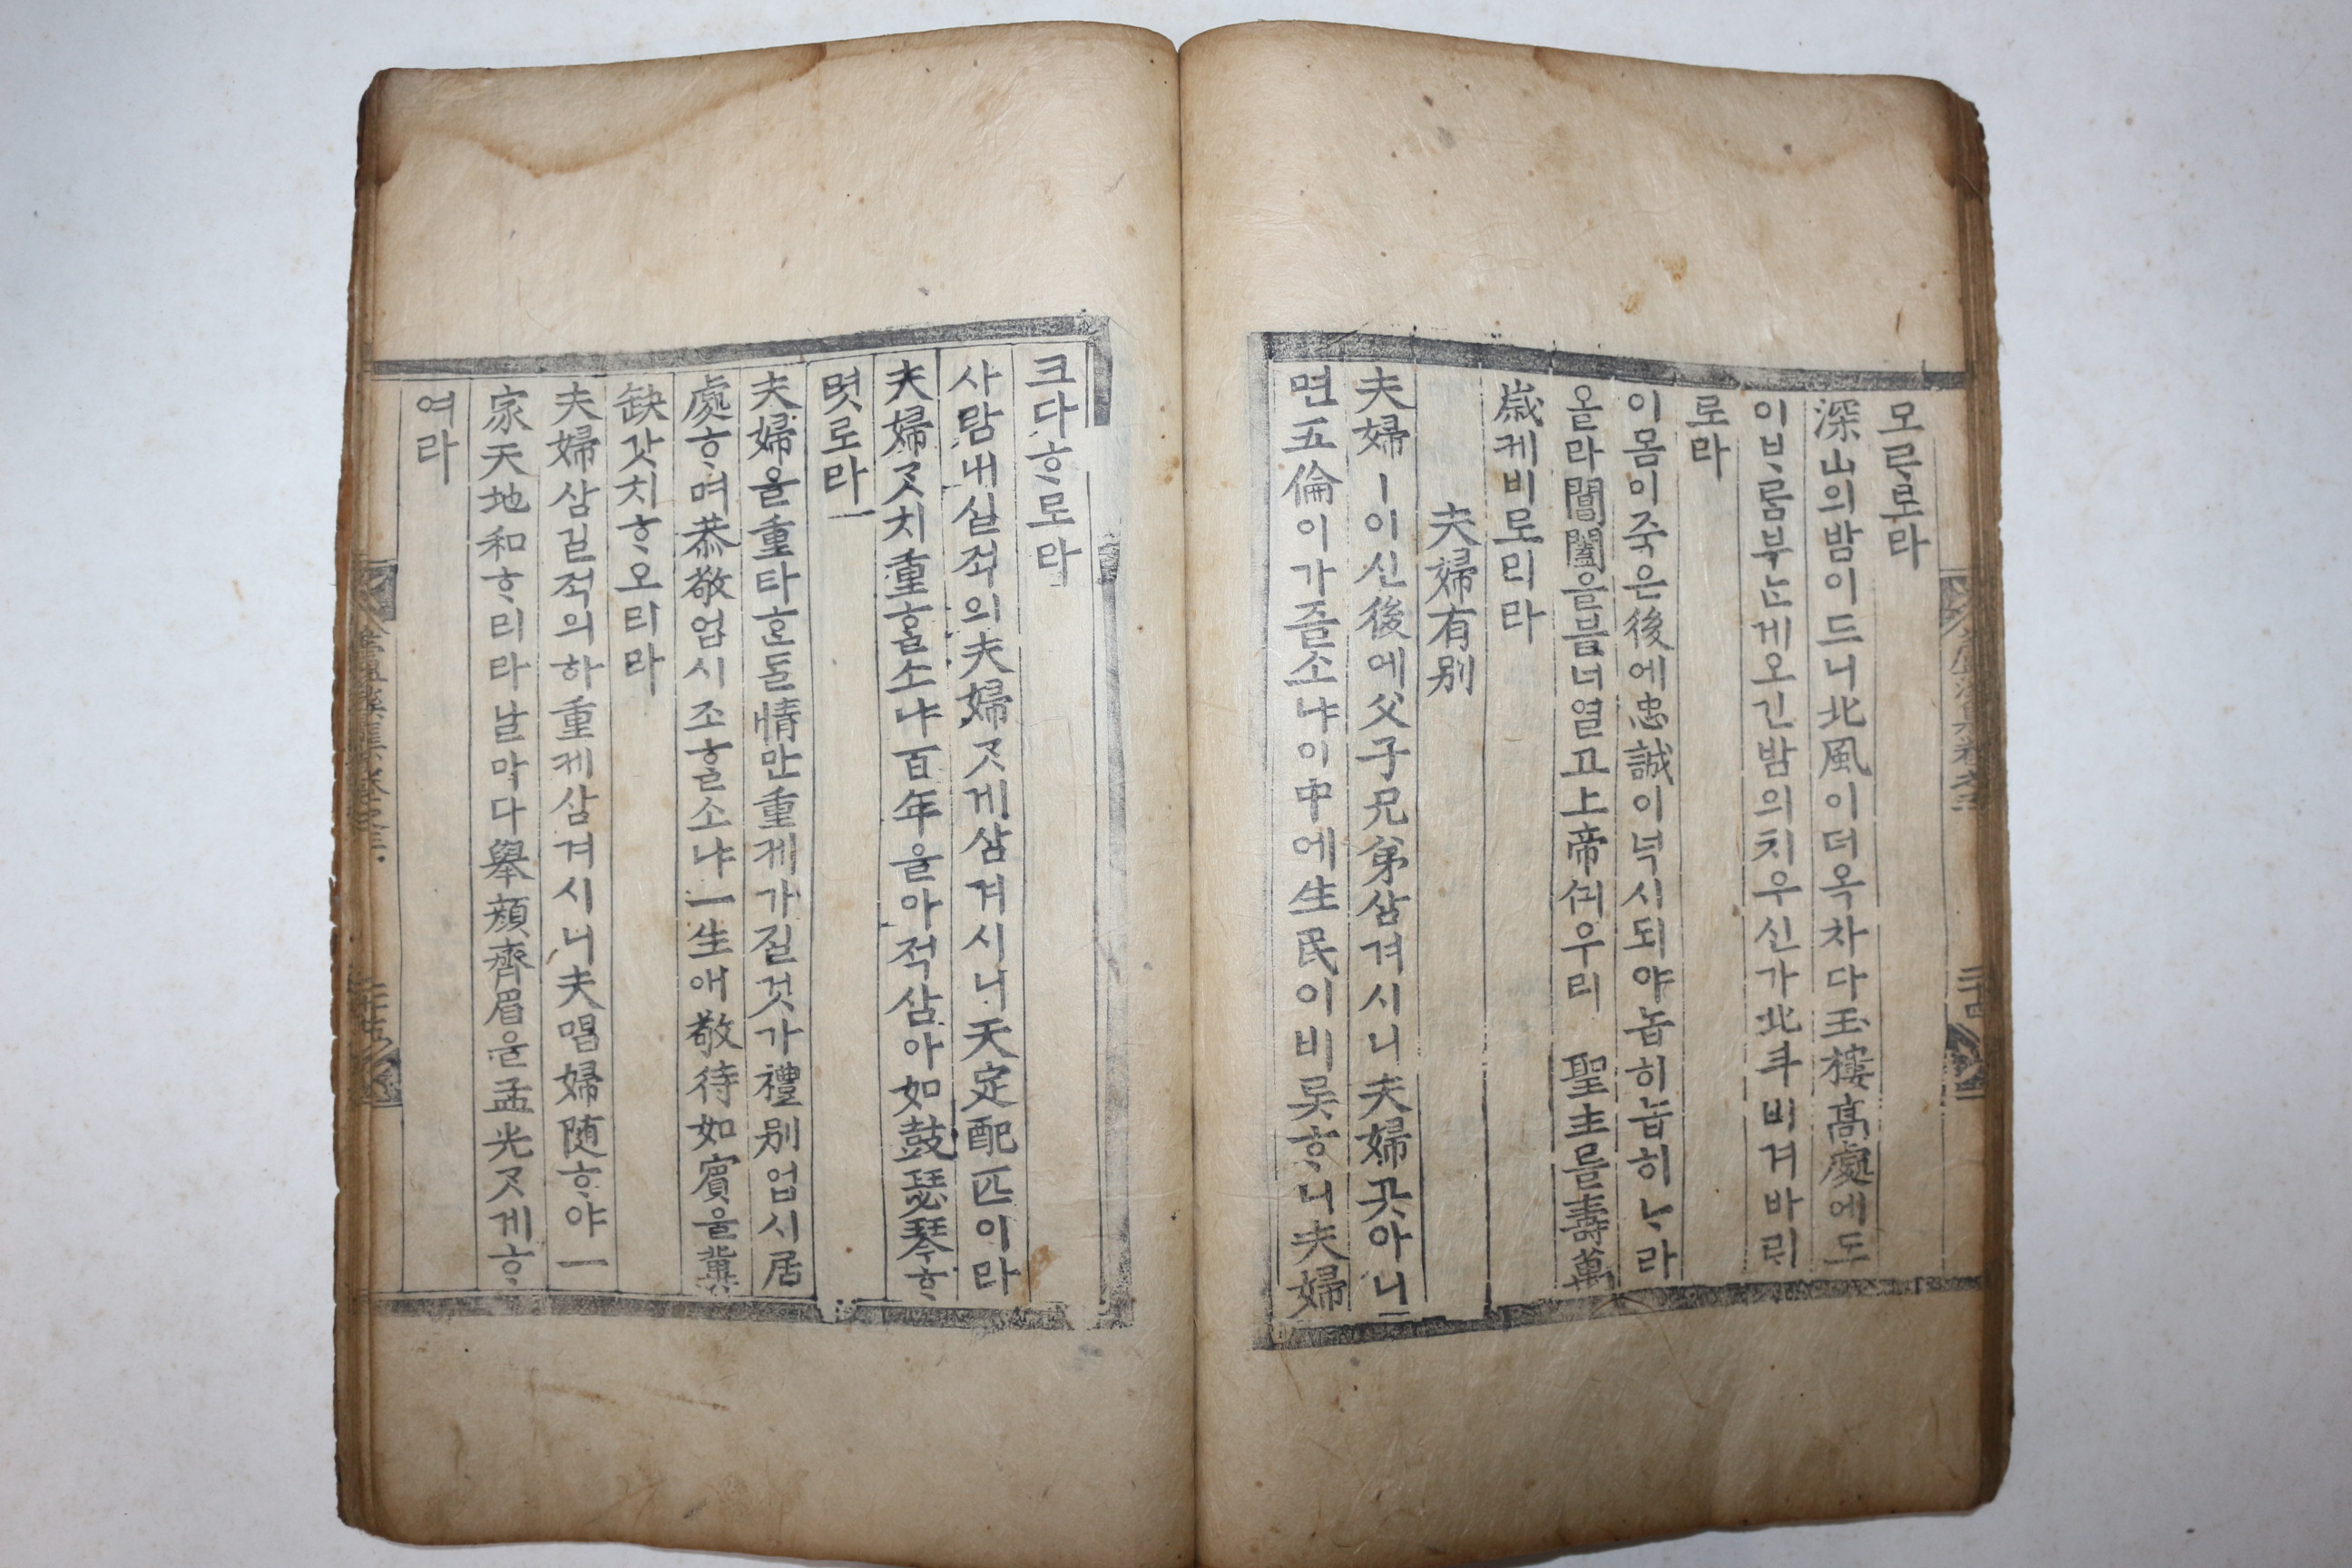 모ᄅᆞ로라
深山의밤이드니北風이더옥차다玉樓高處에도
이ᄇᆞ룸부ᄂᆞᆫ게오긴밤의치우신가北斗비겨바리
로라
이몸이죽은後에忠誠이넉시되야놉히놉히ᄂᆞ라
올라閶闔을블너열고上帝ᄭᅴ우리 聖主를壽萬
歲케비로리라
夫婦有別
夫婦ㅣ이신後에父子兄弟삼겨시니夫婦곳아니
면五倫이가즐소냐이中에生民이비롯ᄒᆞ니夫婦
크다ᄒᆞ로라
사람내실적의夫婦ᄀᆞᆺ게삼겨시니天定配匹이라
夫婦ᄀᆞᆺ치重ᄒᆞᆯ소냐百年을아적삼아如鼓瑟琴ᄒᆞ
렷로라
夫婦을重타ᄒᆞᆫ들情만重케가질것가禮別업시居
處ᄒᆞ며恭敬업시조ᄒᆞᆯ소냐一生애敬待如賓을冀
缺갓치ᄒᆞ오리라
夫婦삼길적의하重케삼겨시니夫唱婦随ᄒᆞ야一
家天地和ᄒᆞ리라날마다擧顔齊眉을孟光ᄀᆞᆺ게ᄒᆞ
여라